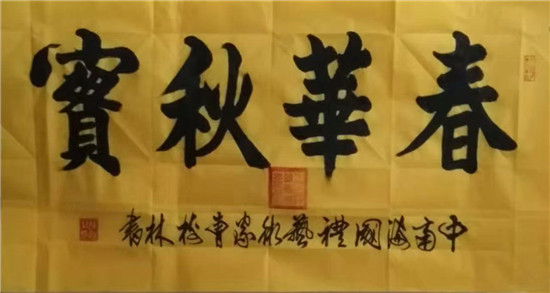 春華秋實
中南海國禮藝術家曹林書